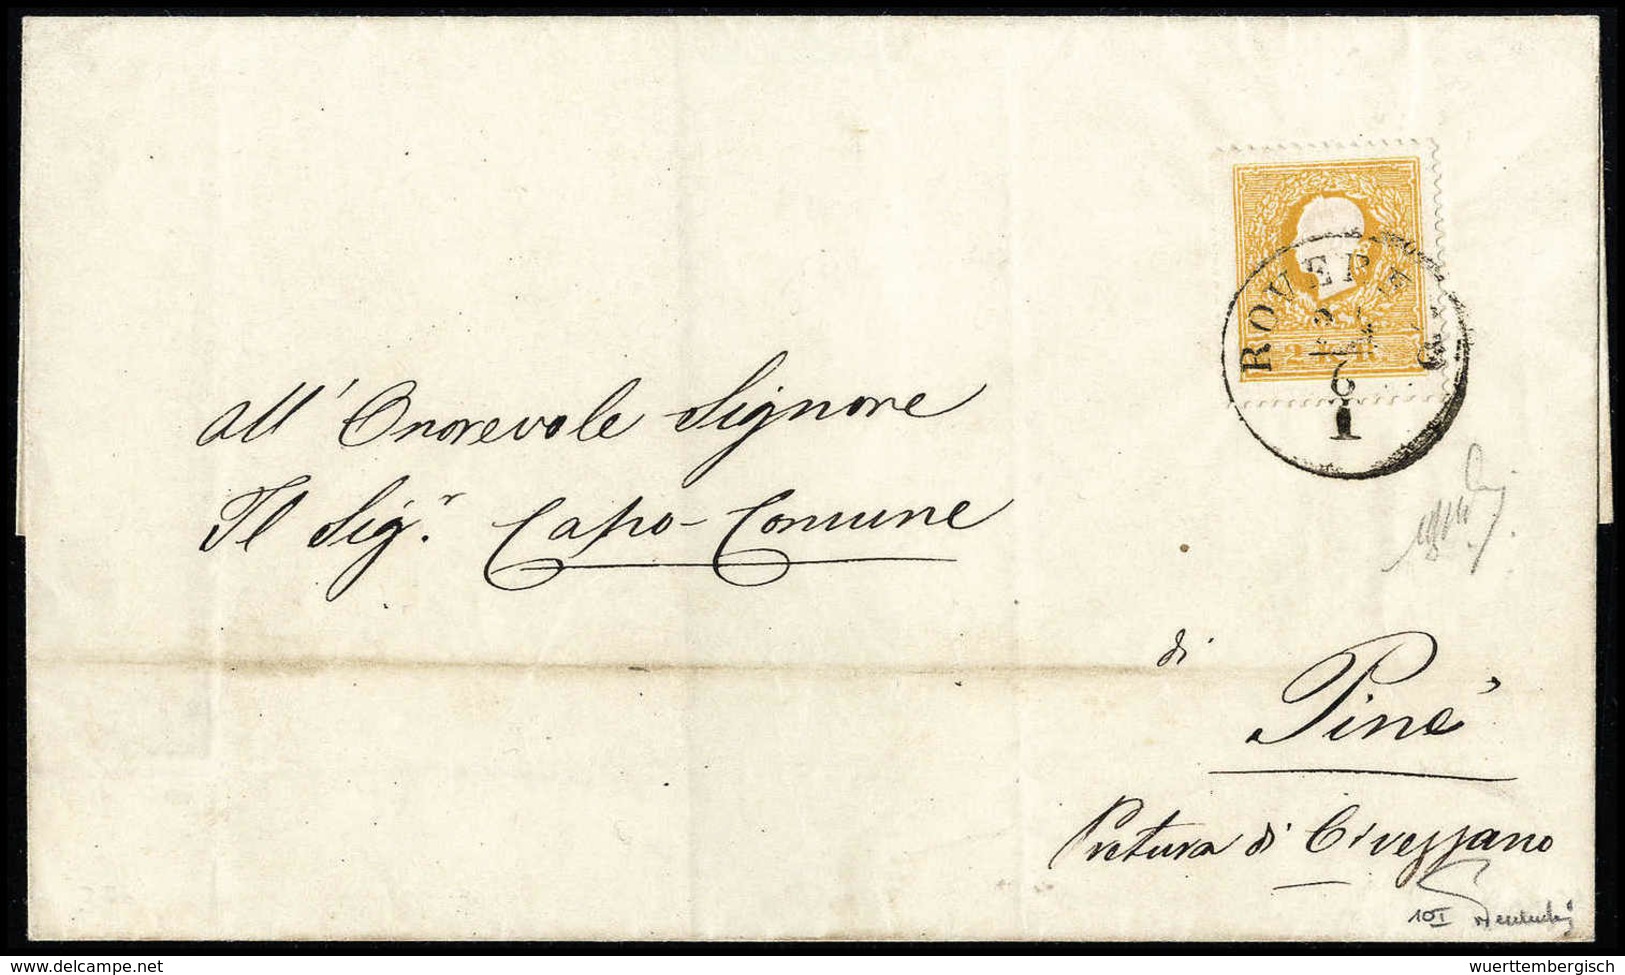 ROVEREDO
6
1
all' Onorevole Signore
Il Sig.r Capo-Comune
di
Pinè
Pretura di Civezzano
10I
© delcampe.net
wuerttembergisch